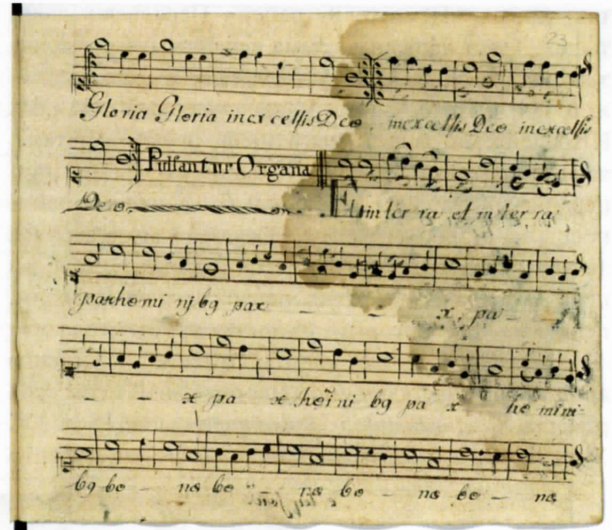 23
Gloria Gloria in excelsis Deo in excelsis Deo in excelsis
Deo Pulsantur Organa Et in ter ra et in ter ra
pax homi nj bg pax x pa
x pa x hoi ni bg pa x ho mini
bg bo nae bo nae bo nae bo nae